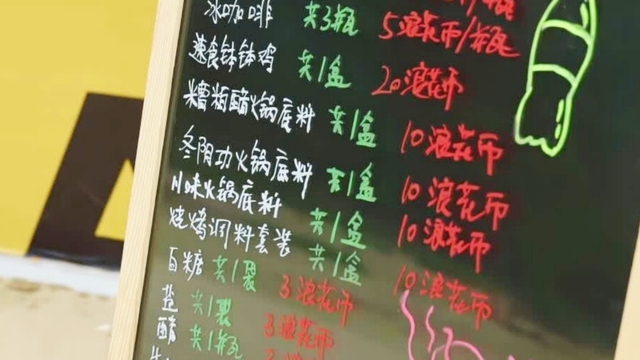 冰咖啡 共3瓶 5浪花币/瓶
速食钵钵鸡 共1盒 20浪花币
糟粕醋火锅底料 共1盒 10浪花币
冬阴功火锅底料 共1盒 10浪花币
川味火锅底料 共1盒 10浪花币
烧烤调料套装 共1盒 10浪花币
白糖 共1袋 3浪花币
盐 共1袋 3浪花币
醋 共1瓶